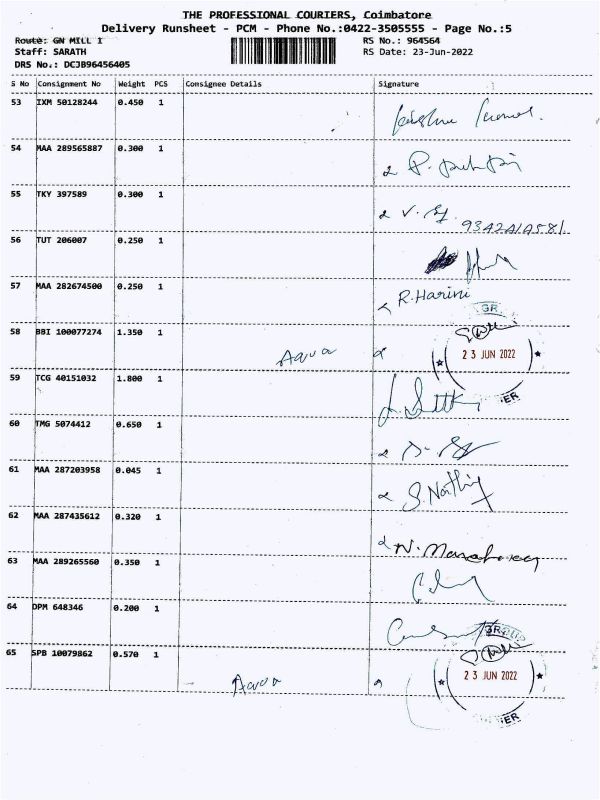 THE PROFESSIONAL COURIERS, Coimbatore
Delivery Runsheet - PCM - Phone No.:0422-3505555 - Page No.:5
Route: GN MILL I
RS No.: 964564
Staff: SARATH
RS Date: 23-Jun-2022
DRS No.: DCJB96456405
S No Consignment No Weight PCS Consignee Details Signature
53 IXM 50128244 0.450 1
54 MAA 289565887 0.300 1
55 TKY 397589 0.300 1
56 TUT 206007 0.250 1
57 MAA 282674500 0.250 1 R.Harini
58 BBI 100077274 1.350 1
23 JUN 2022
59 TCG 40151032 1.800 1
60 TMG 5074412 0.650 1
61 MAA 287203958 0.045 1
62 MAA 287435612 0.320 1
63 MAA 289265560 0.350 1
64 DPM 648346 0.200 1
65 SPB 10079862 0.570 1
23 JUN 2022